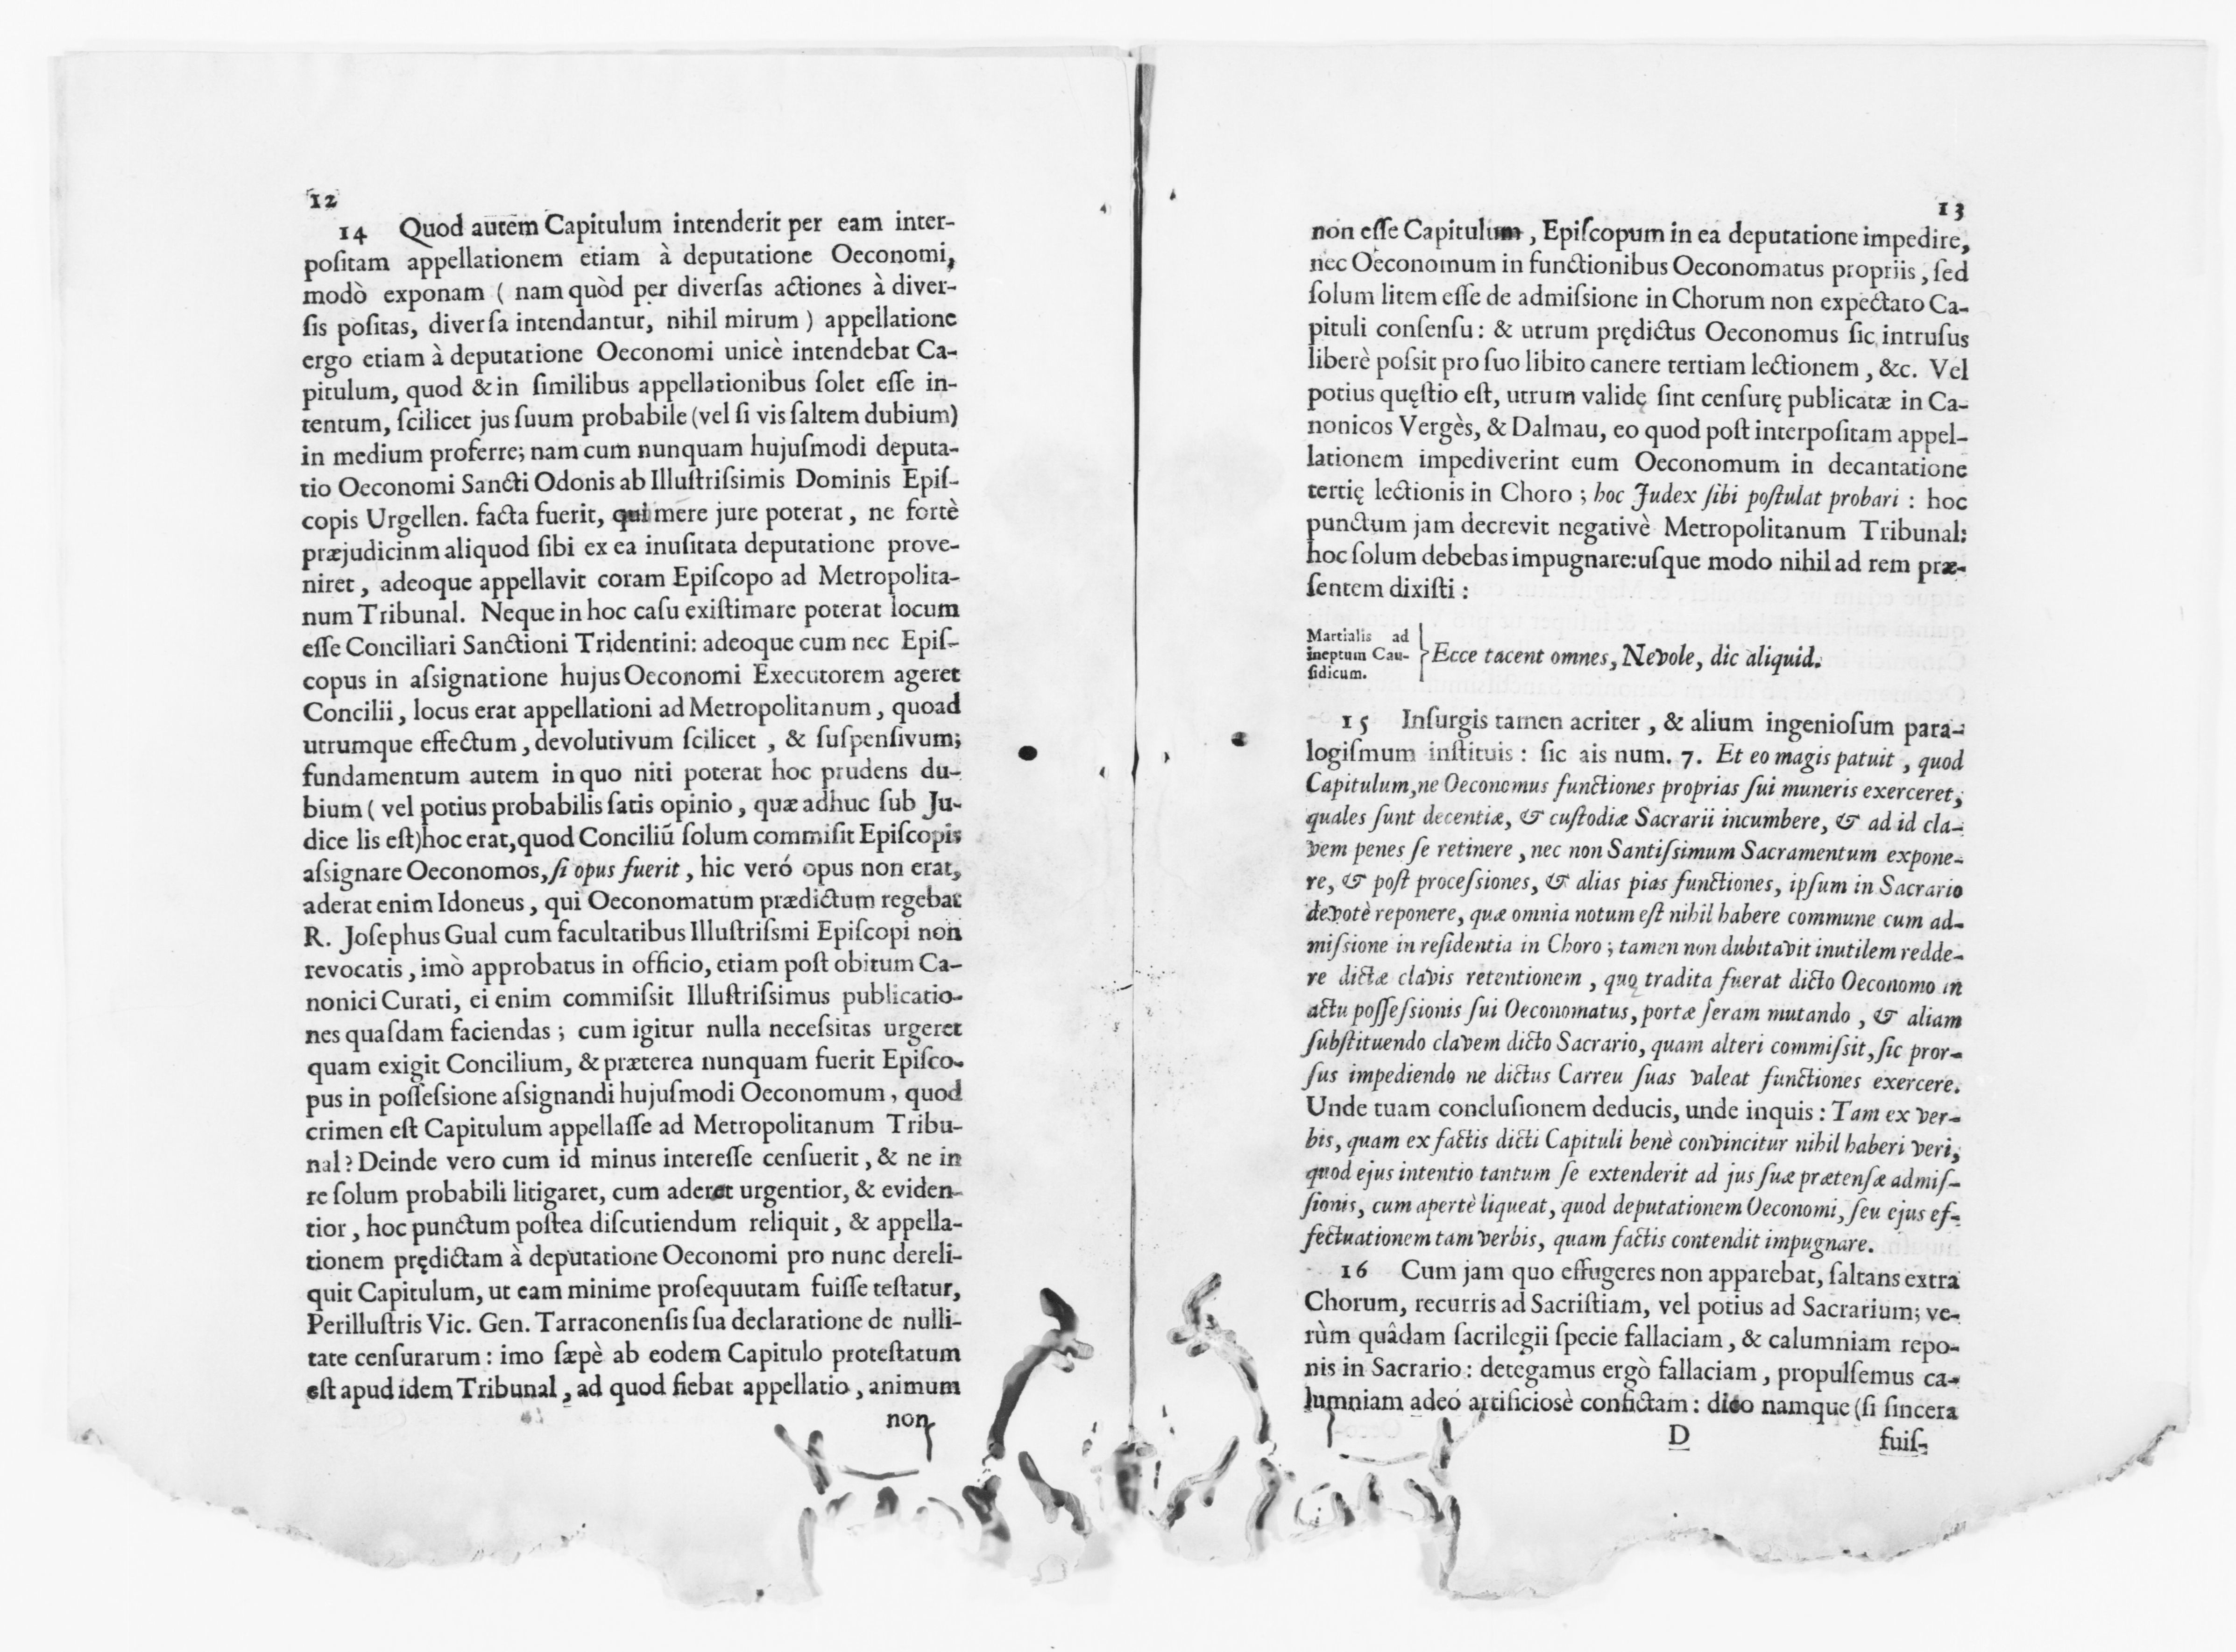 12
14 Quod autem Capitulum intenderit per eam inter-
poſitam appellationem etiam à deputatione Oeconomi,
modò exponam ( nam quòd per diverſas actiones à diver-
ſis poſitas, diverſa intendantur, nihil mirum ) appellatione
ergo etiam à deputatione Oeconomi unicè intendebat Ca-
pitulum, quod & in ſimilibus appellationibus ſolet eſſe in-
tentum, ſcilicet jus ſuum probabile (vel ſi vis ſaltem dubium)
in medium proferre; nam cum nunquam hujuſmodi deputa-
tio Oeconomi Sancti Odonis ab Illuſtriſsimis Dominis Epiſ-
copis Urgellen. facta fuerit, qui mere jure poterat, ne fortè
præjudicinm aliquod ſibi ex ea inuſitata deputatione prove-
niret, adeoque appellavit coram Epiſcopo ad Metropolita-
num Tribunal. Neque in hoc caſu exiſtimare poterat locum
eſſe Conciliari Sanctioni Tridentini: adeoque cum nec Epiſ-
copus in aſsignatione hujus Oeconomi Executorem ageret
Concilii, locus erat appellationi ad Metropolitanum, quoad
utrumque effectum, devolutivum ſcilicet, & ſuſpenſivum;
fundamentum autem in quo niti poterat hoc prudens du-
bium ( vel potius probabilis ſatis opinio, quæ adhuc ſub Ju-
dice lis eſt)hoc erat,quod Conciliũ ſolum commiſit Epiſcopis
aſsignare Oeconomos, ſi opus fuerit, hic veró opus non erat,
aderat enim Idoneus, qui Oeconomatum prædictum regebat
R. Joſephus Gual cum facultatibus Illuſtriſsmi Epiſcopi non
revocatis, imò approbatus in officio, etiam poſt obitum Ca-
nonici Curati, ei enim commiſsit Illuſtriſsimus publicatio-
nes quaſdam faciendas; cum igitur nulla neceſsitas urgeret
quam exigit Concilium, & præterea nunquam fuerit Epiſco-
pus in poſſeſsione aſsignandi hujuſmodi Oeconomum, quod
crimen eſt Capitulum appellaſſe ad Metropolitanum Tribu-
nal? Deinde vero cum id minus intereſſe cenſuerit, & ne in
re ſolum probabili litigaret, cum aderat urgentior, & eviden-
tior, hoc punctum poſtea diſcutiendum reliquit, & appella-
tionem prędictam à deputatione Oeconomi pro nunc dereli-
quit Capitulum, ut eam minime proſequutam fuiſſe teſtatur,
Perilluſtris Vic. Gen. Tarraconenſis ſua declaratione de nulli-
tate cenſurarum: imo ſæpè ab eodem Capitulo proteſtatum
eſt apud idem Tribunal, ad quod fiebat appellatio, animum
non
13
non eſſe Capitulum, Epiſcopum in ea deputatione impedire,
nec Oeconomum in functionibus Oeconomatus propriis, ſed
ſolum litem eſſe de admiſsione in Chorum non expectato Ca-
pituli conſenſu: & utrum prędictus Oeconomus ſic intruſus
liberè poſsit pro ſuo libito canere tertiam lectionem, &c. Vel
potius quęſtio eſt, utrum validę ſint cenſurę publicatæ in Ca-
nonicos Vergès, & Dalmau, eo quod poſt interpoſitam appel-
lationem impediverint eum Oeconomum in decantatione
tertię lectionis in Choro; hoc Judex ſibi poſtulat probari: hoc
punctum jam decrevit negativè Metropolitanum Tribunal:
hoc ſolum debebas impugnare:uſque modo nihil ad rem præ-
ſentem dixiſti:
Martialis ad
ineptum Cau-
ſidicum.
Ecce tacent omnes, Nevole, dic aliquid.
15 Inſurgis tamen acriter, & alium ingenioſum para-
logiſmum inſtituis: ſic ais num. 7. Et eo magis patuit, quod
Capitulum,ne Oeconomus functiones proprias ſui muneris exerceret,
quales ſunt decentiæ, & cuſtodiæ Sacrarii incumbere, & ad id cla-
vem penes ſe retinere, nec non Santiſsimum Sacramentum expone-
re, & poſt proceſsiones, & alias pias functiones, ipſum in Sacrario
devotè reponere, quæ omnia notum eſt nihil habere commune cum ad-
miſsione in reſidentia in Choro; tamen non dubitavit inutilem redde-
re dictæ clavis retentionem, quę tradita fuerat dicto Oeconomo in
actu poſſeſsionis ſui Oeconomatus, portæ ſeram mutando, & aliam
ſubſtituendo clavem dicto Sacrario, quam alteri commiſsit, ſic pror-
ſus impediendo ne dictus Carreu ſuas valeat functiones exercere.
Unde tuam concluſionem deducis, unde inquis: Tam ex ver-
bis, quam ex factis dicti Capituli benè convincitur nihil haberi veri,
quod ejus intentio tantum ſe extenderit ad jus ſuæ prætenſæ admiſ-
ſionis, cum apertè liqueat, quod deputationem Oeconomi, ſeu ejus ef-
fectuationem tam verbis, quam factis contendit impugnare.
16 Cum jam quo effugeres non apparebat, ſaltans extra
Chorum, recurris ad Sacriſtiam, vel potius ad Sacrarium; ve-
rùm quâdam ſacrilegii ſpecie fallaciam, & calumniam repo-
nis in Sacrario: detegamus ergò fallaciam, propulſemus ca-
lumniam adeó artificiosè confictam: dico namque (ſi ſincera
D
fuiſ-